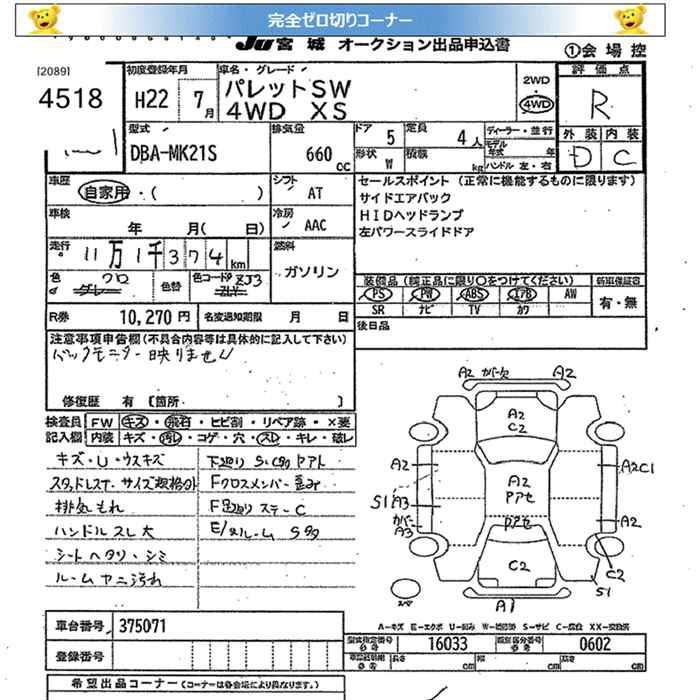 完全ゼロ切りコーナー
JU宮城 オークション出品申込書
①会場控
[2089]
4518
初度登録年月
H22 7月
車名・グレード
パレットSW
4WD XS
2WD
4WD
評価点
R
外装 内装
D C
型式
DBA-MK21S
排気量
660 CC
ドア 5
定員 4人
形状 W
積載 kg
ディーラー・並行
モデル年式 年
ハンドル 左・右
車歴
自家用・( )
シフト AT
車検
年 月( 日)
冷房 AAC
走行
11万1千374km
燃料
ガソリン
色 クロ
グレー
色替
色コードNo ZJ3
ZLV
セールスポイント (正常に機能するものに限ります)
サイドエアバック
HIDヘッドランプ
左パワースライドドア
装備品 (純正品に限り○をつけてください)
新車保証書
PS PW ABS エアB AW
SR ナビ TV カワ
有・無
R券 10,270円
名変通知期限 月 日
後日品
注意事項申告欄(不具合内容等は具体的に記入して下さい)
バックモニター映りません
修復歴 有 [箇所
検査員 FW キズ・飛石・ヒビ割・リペア跡・×要
記入欄 内装 キズ・汚レ・コゲ・穴・スレ・キレ・破レ
キズ・U・ウスキズ
スタッドレスT. サイズ規格外
排気もれ
ハンドルスレ大
シートヘタリ・シミ
ルームヤニ汚れ
下廻り S(多) アト
Fクロスメンバー 歪み
F足廻り ステーC
E/Mルーム S多
A2 カバー欠 A2
A2
C2
A2
A2
Pアセ
A2C1
S1 A3
カバー
A3
Pアセ
A2
C2
C2
S1
A1
スペ
A-キズ E-エクボ U-凹み W-補修跡 S-サビ C-腐食 XX-交換済
車台番号 375071
登録番号
型式指定番号 16033
類別区分番号 0602
長さ cm
幅 cm
高さ cm
希望出品コーナー (コーナーは各会場により異なります。)